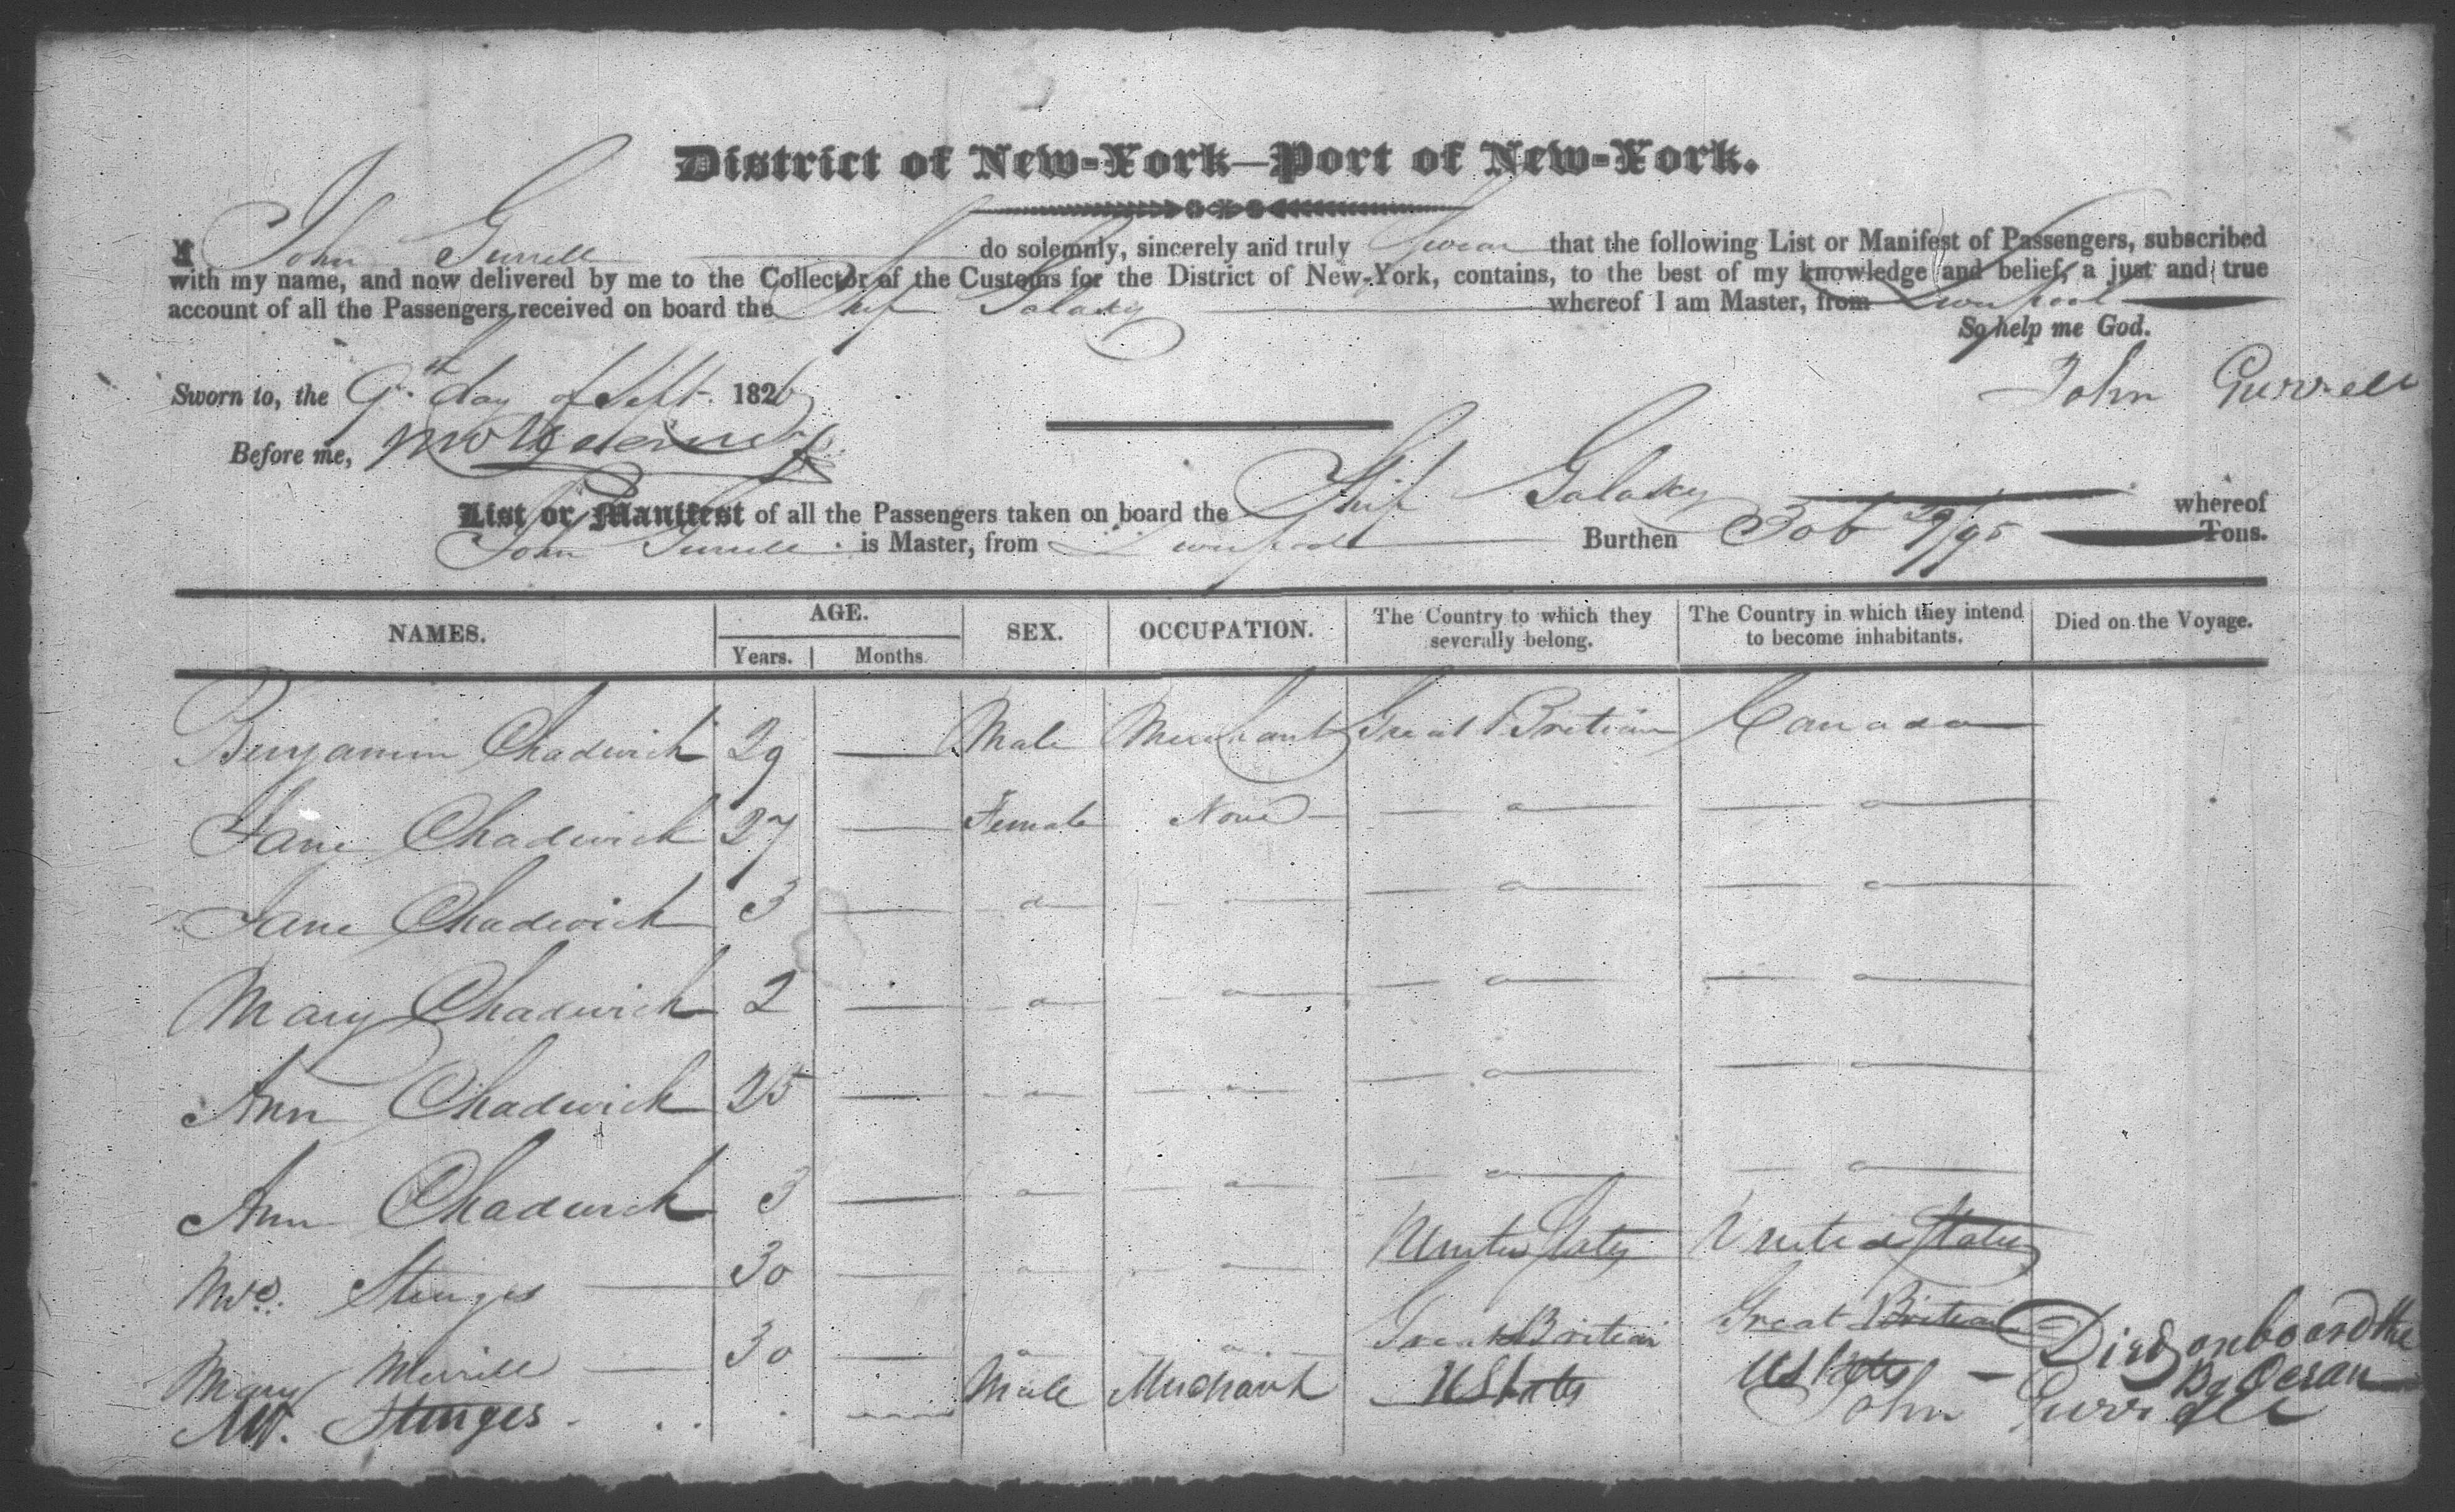 District of New-York—Port of New-York.
I John Gurrell do solemnly, sincerely and truly Swear that the following List or Manifest of Passengers, subscribed
with my name, and now delivered by me to the Collector of the Customs for the District of New-York, contains, to the best of my knowledge and belief, a just and true
account of all the Passengers received on board the Ship Galaxy whereof I am Master, from Liverpool
So help me God.
Sworn to, the 9th day of Sept. 1826 John Gurrell
Before me,
List or Manifest of all the Passengers taken on board the Ship Galaxy whereof
John Gurrell is Master, from Liverpool Burthen 306 29/95 Tons.
NAMES. AGE. SEX. OCCUPATION. The Country to which they severally belong. The Country in which they intend to become inhabitants. Died on the Voyage.
Years. Months.
Benjamin Chadwick 29 — Male Merchant Great Britian Canada
Jane Chadwick 27 — Female None — o — — o —
Jane Chadwick 3 — o — — — o — — o —
Mary Chadwick 2 — o — — o — — o — — o —
Ann Chadwick 25 — o — — o — — o — — o —
Ann Chadwick 3 — o — — o — — o — — o —
Mrs. Sturges 30 — o — — o — United States United States
Mary Merrill 30 — o — — o — Great Britian Great Britian
Mr. Sturges Male Merchant U States U States — Died on board the Bg Ocean
John Gurrell